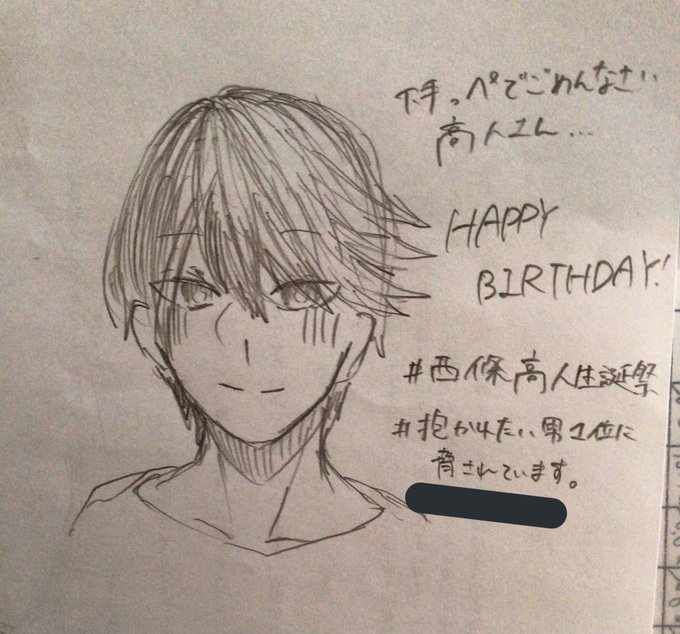 下手っぺでごめんなさい
高人さん...
HAPPY
BIRTHDAY!
#西條高人生誕祭
#抱かれたい男1位に
脅されています。